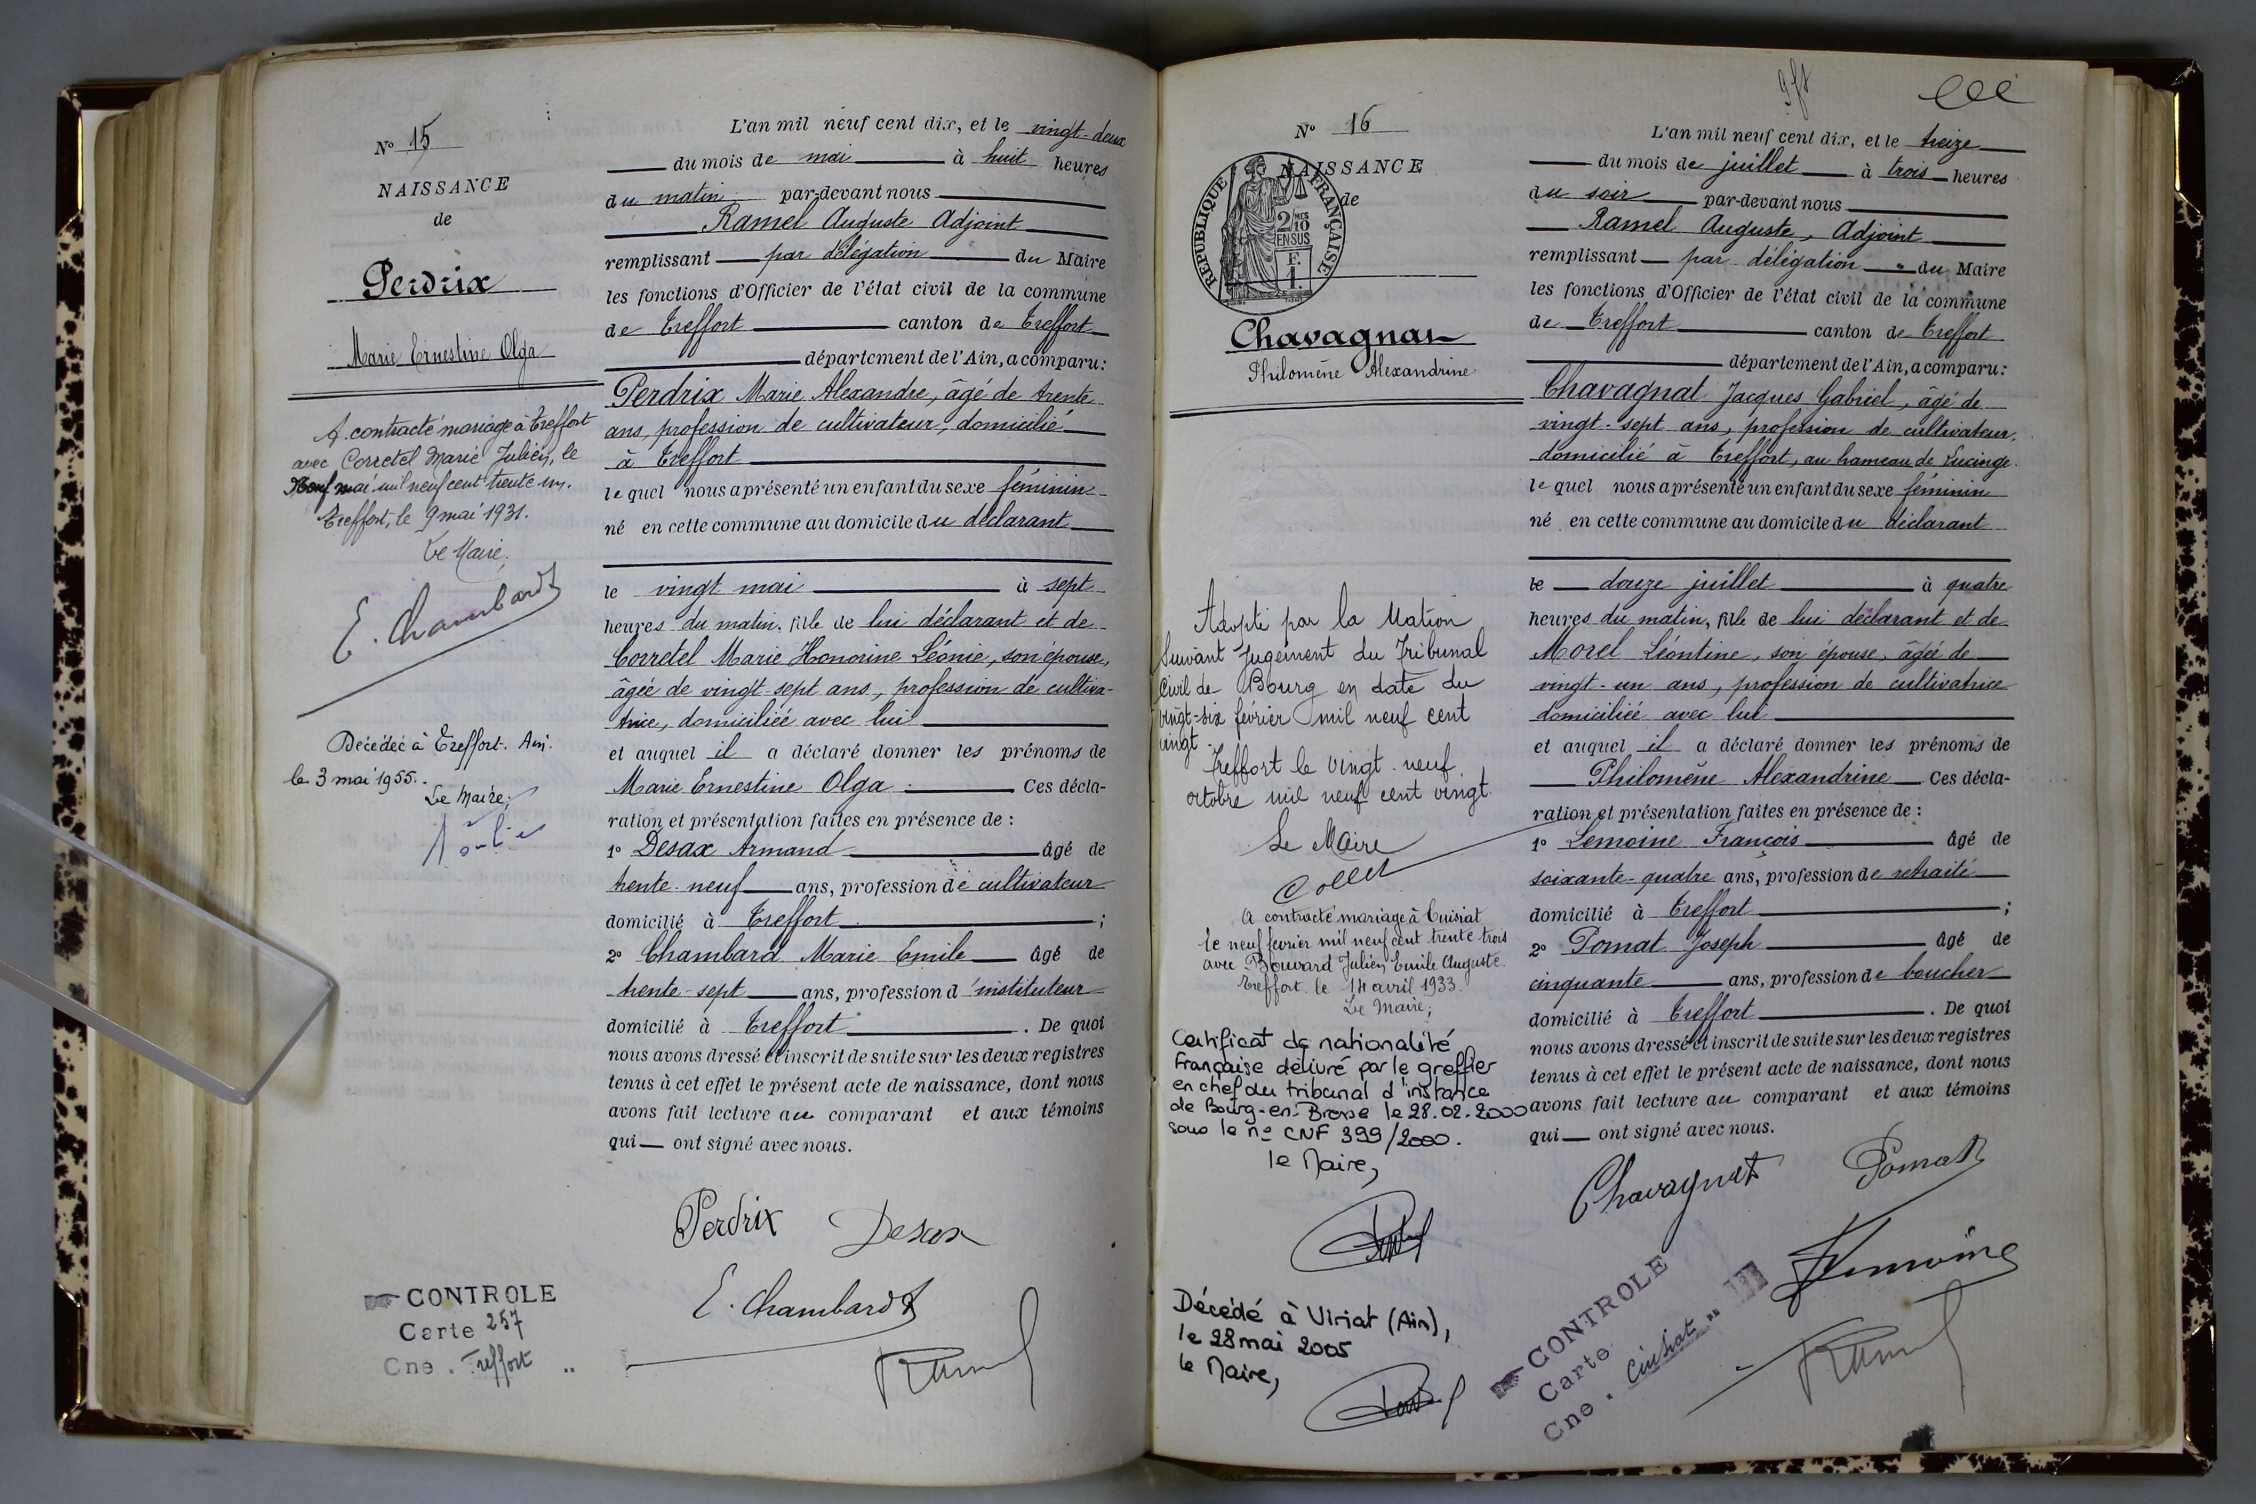 Nº 15
NAISSANCE
de
Perdrix
Marie Ernestine Olga
A contracté mariage à Treffort
avec Corretel Marie Julien, le
Neuf mai mil neuf cent trente un.
Treffort, le 9 mai 1931.
Le Maire,
E. Chambard
Décédée à Treffort. Ain.
le 3 mai 1955.
Le Maire,
CONTROLE
Carte 257
Cne. Treffort
L'an mil neuf cent dix, et le vingt-deux
du mois de mai à huit heures
du matin par-devant nous
Ramel Auguste Adjoint
remplissant par délégation du Maire
les fonctions d'Officier de l'état civil de la commune
de Treffort canton de Treffort
département de l'Ain, a comparu:
Perdrix Marie Alexandre, âgé de trente
ans, profession de cultivateur, domicilié
à Treffort
lequel nous a présenté un enfant du sexe féminin
né en cette commune au domicile du déclarant
le vingt mai à sept
heures du matin, fille de lui déclarant et de
Corretel Marie Honorine Léonie, son épouse,
âgée de vingt-sept ans, profession de cultiva-
trice, domiciliée avec lui
et auquel il a déclaré donner les prénoms de
Marie Ernestine Olga Ces décla-
ration et présentation faites en présence de :
1º Desax Armand âgé de
trente-neuf ans, profession de cultivateur
domicilié à Treffort ;
2º Chambard Marie Emile âgé de
trente-sept ans, profession d'instituteur
domicilié à Treffort . De quoi
nous avons dressé et inscrit de suite sur les deux registres
tenus à cet effet le présent acte de naissance, dont nous
avons fait lecture au comparant et aux témoins
qui ont signé avec nous.
Perdrix Desax
E. Chambard
Ramel
Nº 16
NAISSANCE
de
RÉPUBLIQUE FRANÇAISE
2/10 MES
EN SUS
E.
1.
Chavagnat
Philomène Alexandrine
Adopté par la Nation
Suivant jugement du Tribunal
Civil de Bourg en date du
vingt-six février mil neuf cent
vingt.
Treffort le vingt-neuf
octobre mil neuf cent vingt.
Le Maire
Collet
A contracté mariage à Cuisiat
le neuf fevrier mil neuf cent trente trois
avec Bouvard Julien Emile Auguste.
Treffort le 14 avril 1933.
Le Maire;
Certificat de nationalité
Française délivré par le greffier
en chef du tribunal d'instance
de Bourg-en-Bresse le 28.02.2000
sous le nº CNF 399/2000.
le Maire,
Décédé à Viriat (Ain),
le 28 mai 2005
le Maire,
L'an mil neuf cent dix, et le treize
du mois de juillet à trois heures
du soir par-devant nous
Ramel Auguste, Adjoint
remplissant par délégation du Maire
les fonctions d'Officier de l'état civil de la commune
de Treffort canton de Treffort
département de l'Ain, a comparu:
Chavagnat Jacques Gabriel, âgé de
vingt-sept ans, profession de cultivateur,
domicilié à Treffort, au hameau de Lucinge.
lequel nous a présenté un enfant du sexe féminin
né en cette commune au domicile du déclarant
le douze juillet à quatre
heures du matin, fille de lui déclarant et de
Morel Léontine, son épouse, âgée de
vingt-un ans, profession de cultivatrice
domiciliée avec lui
et auquel il a déclaré donner les prénoms de
Philomène Alexandrine Ces décla-
ration et présentation faites en présence de :
1º Lemoine François âgé de
soixante-quatre ans, profession de retraité
domicilié à Treffort ;
2º Pomat Joseph âgé de
cinquante ans, profession de boucher
domicilié à Treffort . De quoi
nous avons dressé et inscrit de suite sur les deux registres
tenus à cet effet le présent acte de naissance, dont nous
avons fait lecture au comparant et aux témoins
qui ont signé avec nous.
Chavagnat Pomat
Lemoine
Ramel
CONTROLE
Carte
Cne. Cuisiat